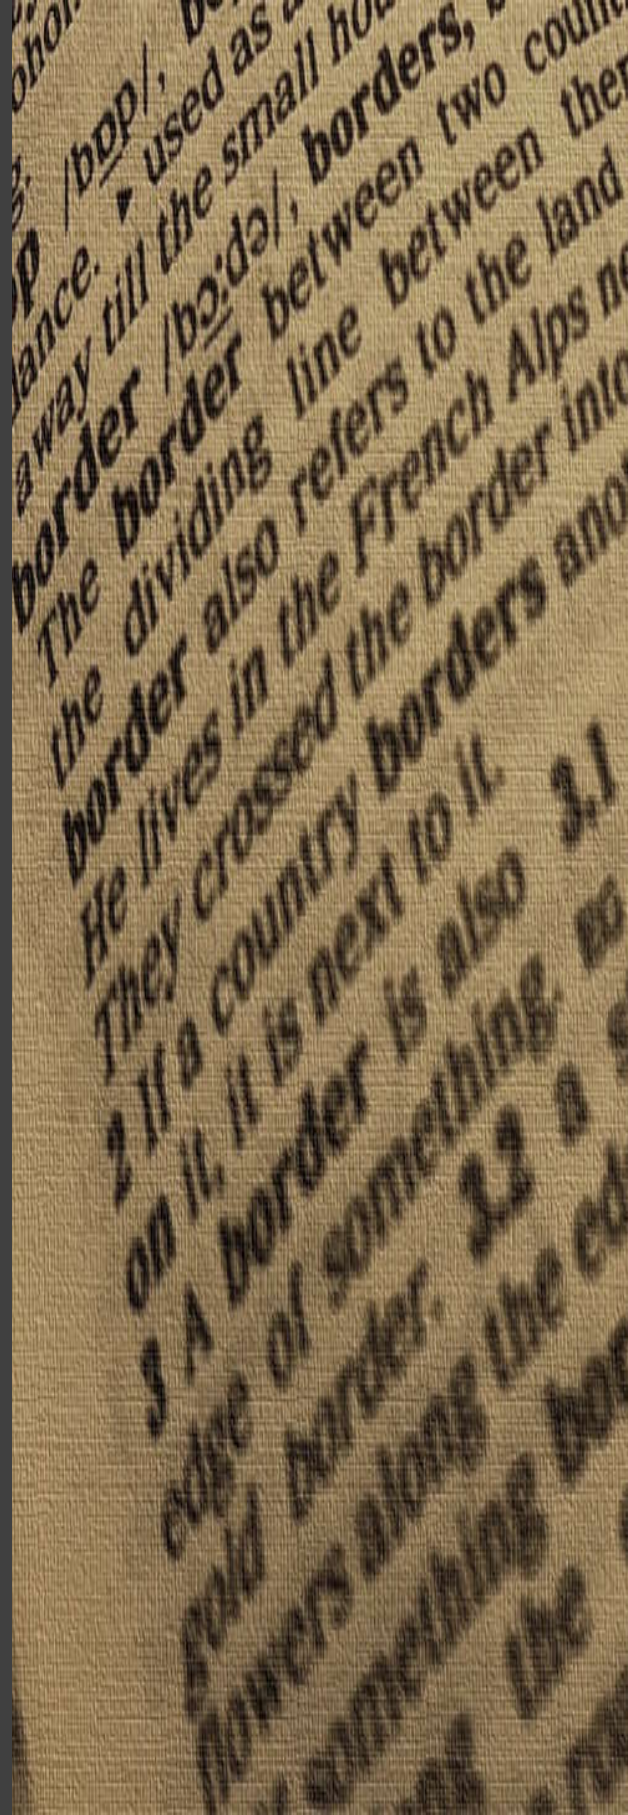 /bɒp/,
▸ used as a
away till the small hou
border /bɔːdə/, borders, b
The border between two count
the dividing line between ther
border also refers to the land
He lives in the French Alps ne
They crossed the border into
2 If a country borders ano
on it, it is next to it.
3 A border is also 3.1
edge of something. EG
gold border. 3.2 a s
flowers along the ed
something bor
the